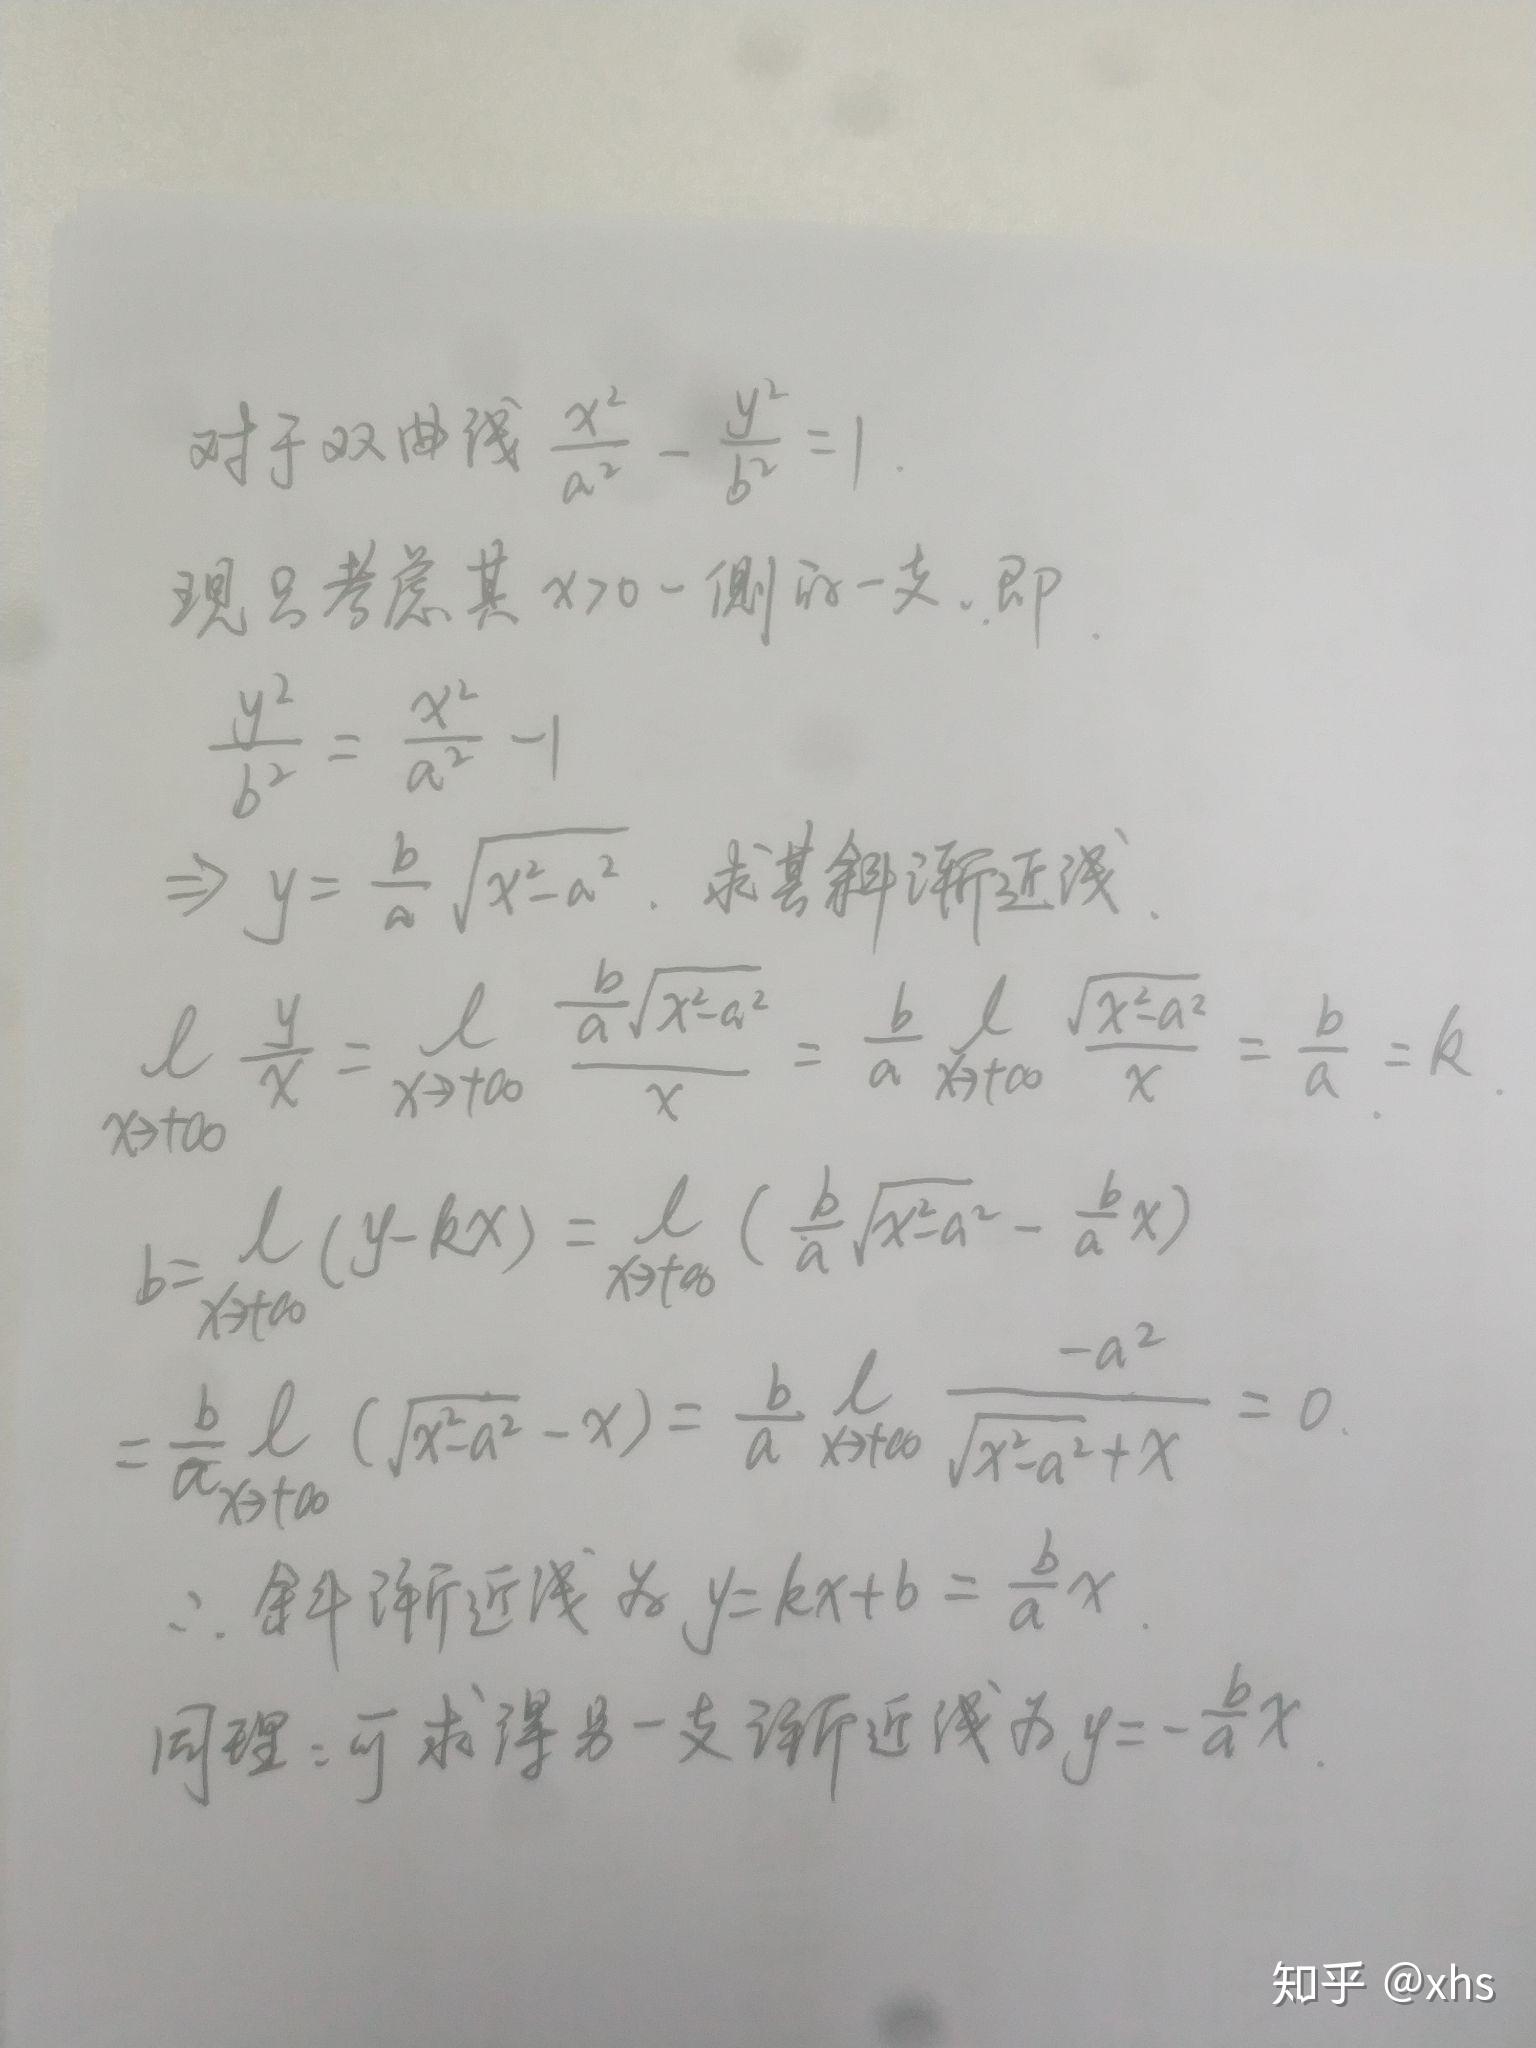 对于双曲线 x²/a² - y²/b² = 1.
现只考虑其 x>0 一侧的一支.即.
y²/b² = x²/a² -1
⇒ y = b/a √(x²-a²). 求其斜渐近线.
l x→+∞ y/x = l x→+∞ (b/a √(x²-a²))/x = b/a l x→+∞ √(x²-a²)/x = b/a. = k.
b = l x→+∞ (y-kx) = l x→+∞ (b/a √(x²-a²) - b/a x)
= b/a l x→+∞ (√(x²-a²) - x) = b/a l x→+∞ -a²/(√(x²-a²)+x) = 0.
∴ 斜渐近线为 y=kx+b = b/a x.
同理:可求得另一支渐近线为 y=-b/a x.
知乎 @xhs